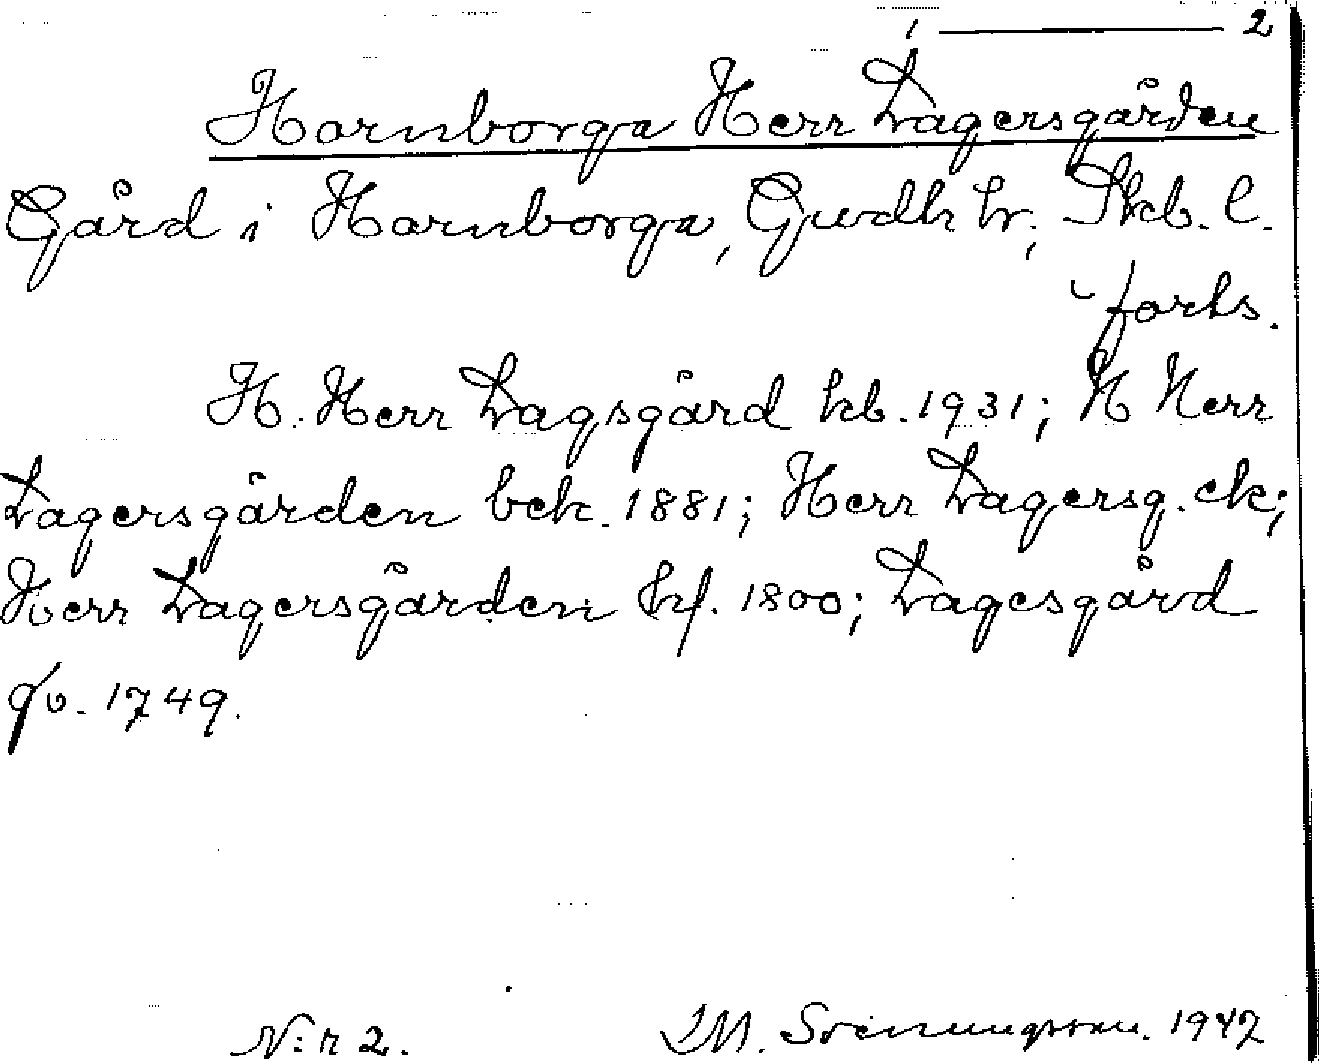 1 ——— 2
Hornborga Herr Lagersgården
Gård i Hornborga, Gudh hr; Skb. l.
forts.
H. Herr Lagsgård kb. 1931; H Herr
Lagersgården bek. 1881; Herr Lagersg. ek;
Herr Lagersgården hf. 1800; Lagesgård
gb. 1749.
N:r 2. M. Sveningsson. 1947